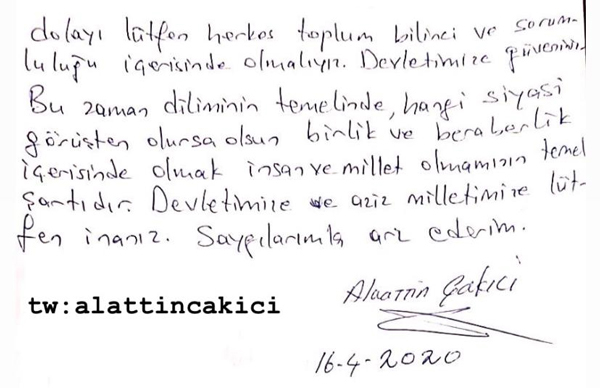 dolayı lütfen herkes toplum bilinci ve sorum-
luluğu içerisinde olmalıyız. Devletimize güveniniz.
Bu zaman diliminin temelinde, hangi siyasi
görüşten olursa olsun birlik ve beraberlik
içerisinde olmak insan ve millet olmamızın temel
şartıdır. Devletimize ve aziz milletimize lüt-
fen inanız. Saygılarımla arz ederim.
Alaattin Çakıcı
tw:alattincakici
16-4-2020